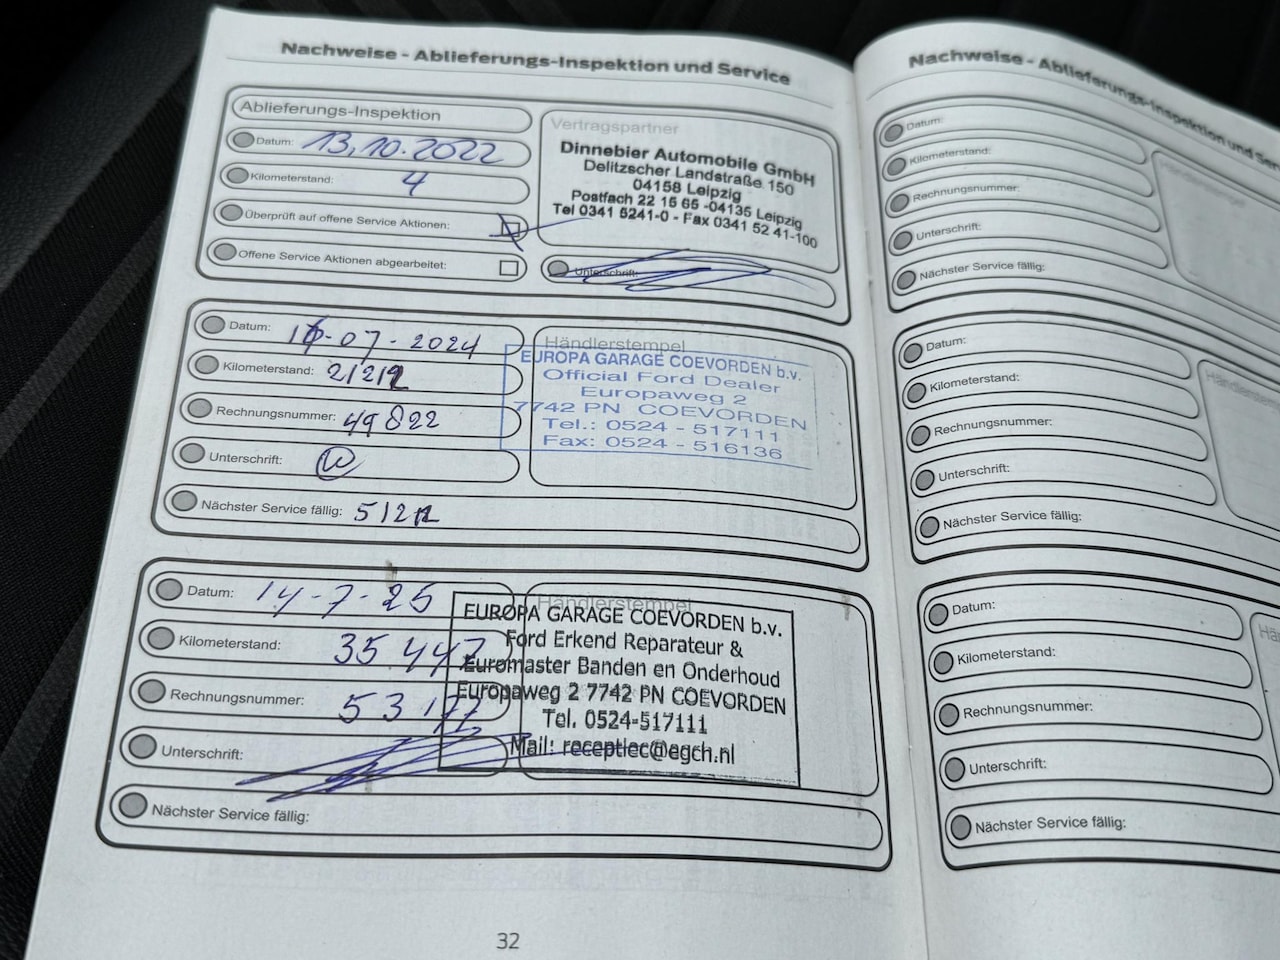 Nachweise - Ablieferungs-Inspektion und Service
Ablieferungs-Inspektion
Datum: 13.10.2022
Kilometerstand: 4
Überprüft auf offene Service Aktionen:
Offene Service Aktionen abgearbeitet:
Vertragspartner
Dinnebier Automobile GmbH
Delitzscher Landstraße 150
04158 Leipzig
Postfach 22 15 65 -04135 Leipzig
Tel 0341 5241-0 - Fax 0341 52 41-100
Unterschrift:
Datum: 10-07-2024
Kilometerstand: 21212
Rechnungsnummer: 49822
Unterschrift:
Nächster Service fällig:
Händlerstempel
EUROPA GARAGE COEVORDEN b.v.
Official Ford Dealer
Europaweg 2
7742 PN COEVORDEN
Tel.: 0524 - 517111
Fax: 0524 - 516136
Datum: 14-7-25
Kilometerstand: 35 447
Rechnungsnummer: 53177
Unterschrift:
Nächster Service fällig:
Händlerstempel
EUROPA GARAGE COEVORDEN b.v.
Ford Erkend Reparateur &
Euromaster Banden en Onderhoud
Europaweg 2 7742 PN COEVORDEN
Tel. 0524-517111
Mail: receptiec@egch.nl
32
Nachweise - Ablieferungs-Inspektion und Ser
Datum:
Kilometerstand:
Rechnungsnummer:
Unterschrift:
Nächster Service fällig:
Datum:
Kilometerstand:
Rechnungsnummer:
Unterschrift:
Nächster Service fällig:
Datum:
Kilometerstand:
Rechnungsnummer:
Unterschrift:
Nächster Service fällig: